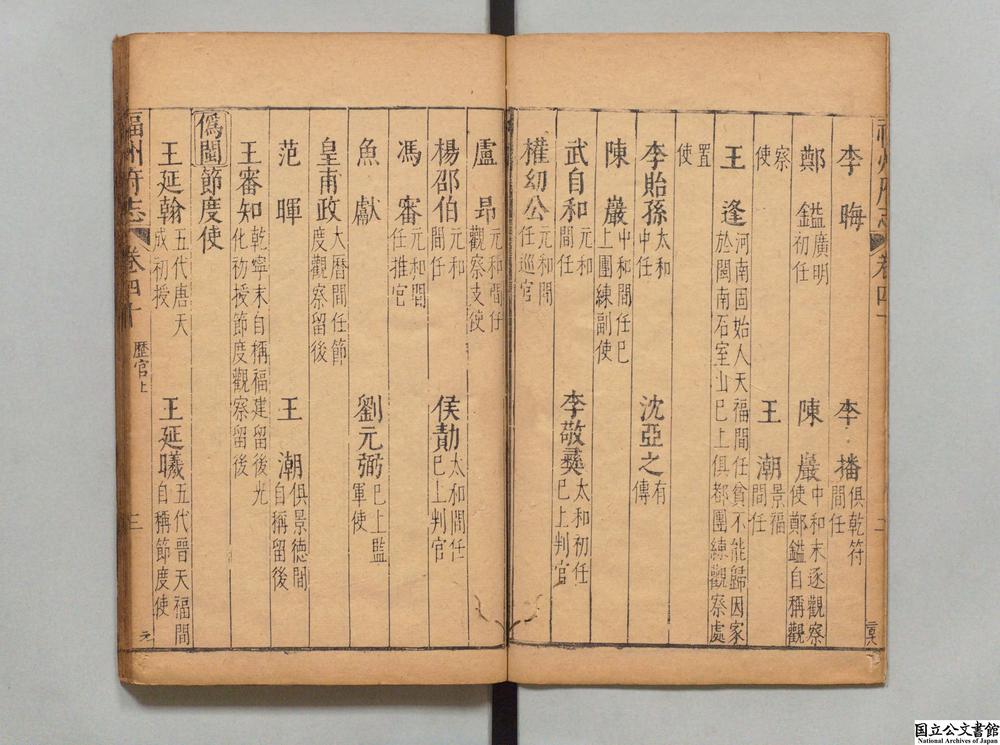 李晦 李播俱乾符間任
鄭鑑廣明初任 陳巖中和末逐觀察使鄭鑑自稱觀
察使 王潮景福間任
王逢河南固始人天福間任貧不能歸因家於閩南石室山巳上俱都團練觀察處
置使
李貽孫太和中任 沈亞之有傳
陳巖中和間任巳上團練副使
武自和元和間任 李敬彞太和初任巳上判官
權幼公元和間任巡官
盧昂元和間任觀察支使
楊邵伯元和間任 侯勣太和間任巳上判官
馮審元和間任推官
魚獻 劉元弼巳上監軍使
皇甫政大曆間任節度觀察留後
范暉 王潮俱景德間自稱留後
王審知乾寧末自稱福建留後光化初授節度觀察留後
僞閩節度使
王延翰五代唐天成初授 王延曦五代晉天福間自稱節度使
福州府志 卷四十 歷官上 三
国立公文書館
National Archives of Japan